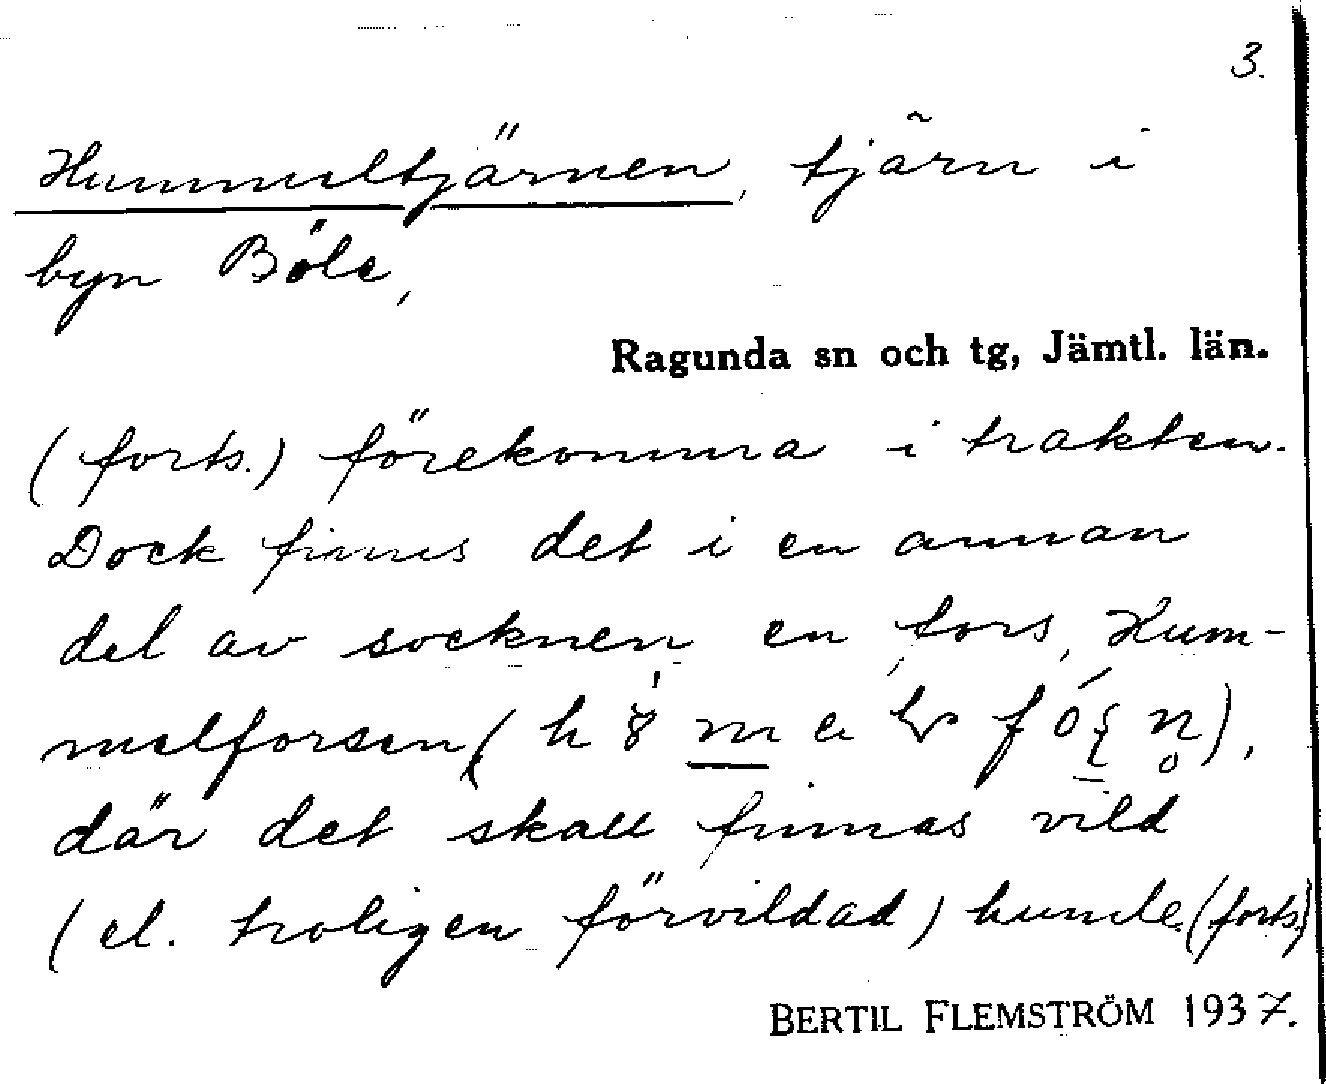 3.
Hummeltjärnen, tjärn i
byn Böle,
Ragunda sn och tg, Jämtl. län.
(forts.) förekomma i trakten.
Dock finnes det i en annan
del av socknen en fors, Hum-
melforsen (
där det skall finnas vild
(el. troligen förvildad) humle (forts.)
BERTIL FLEMSTRÖM 1937.